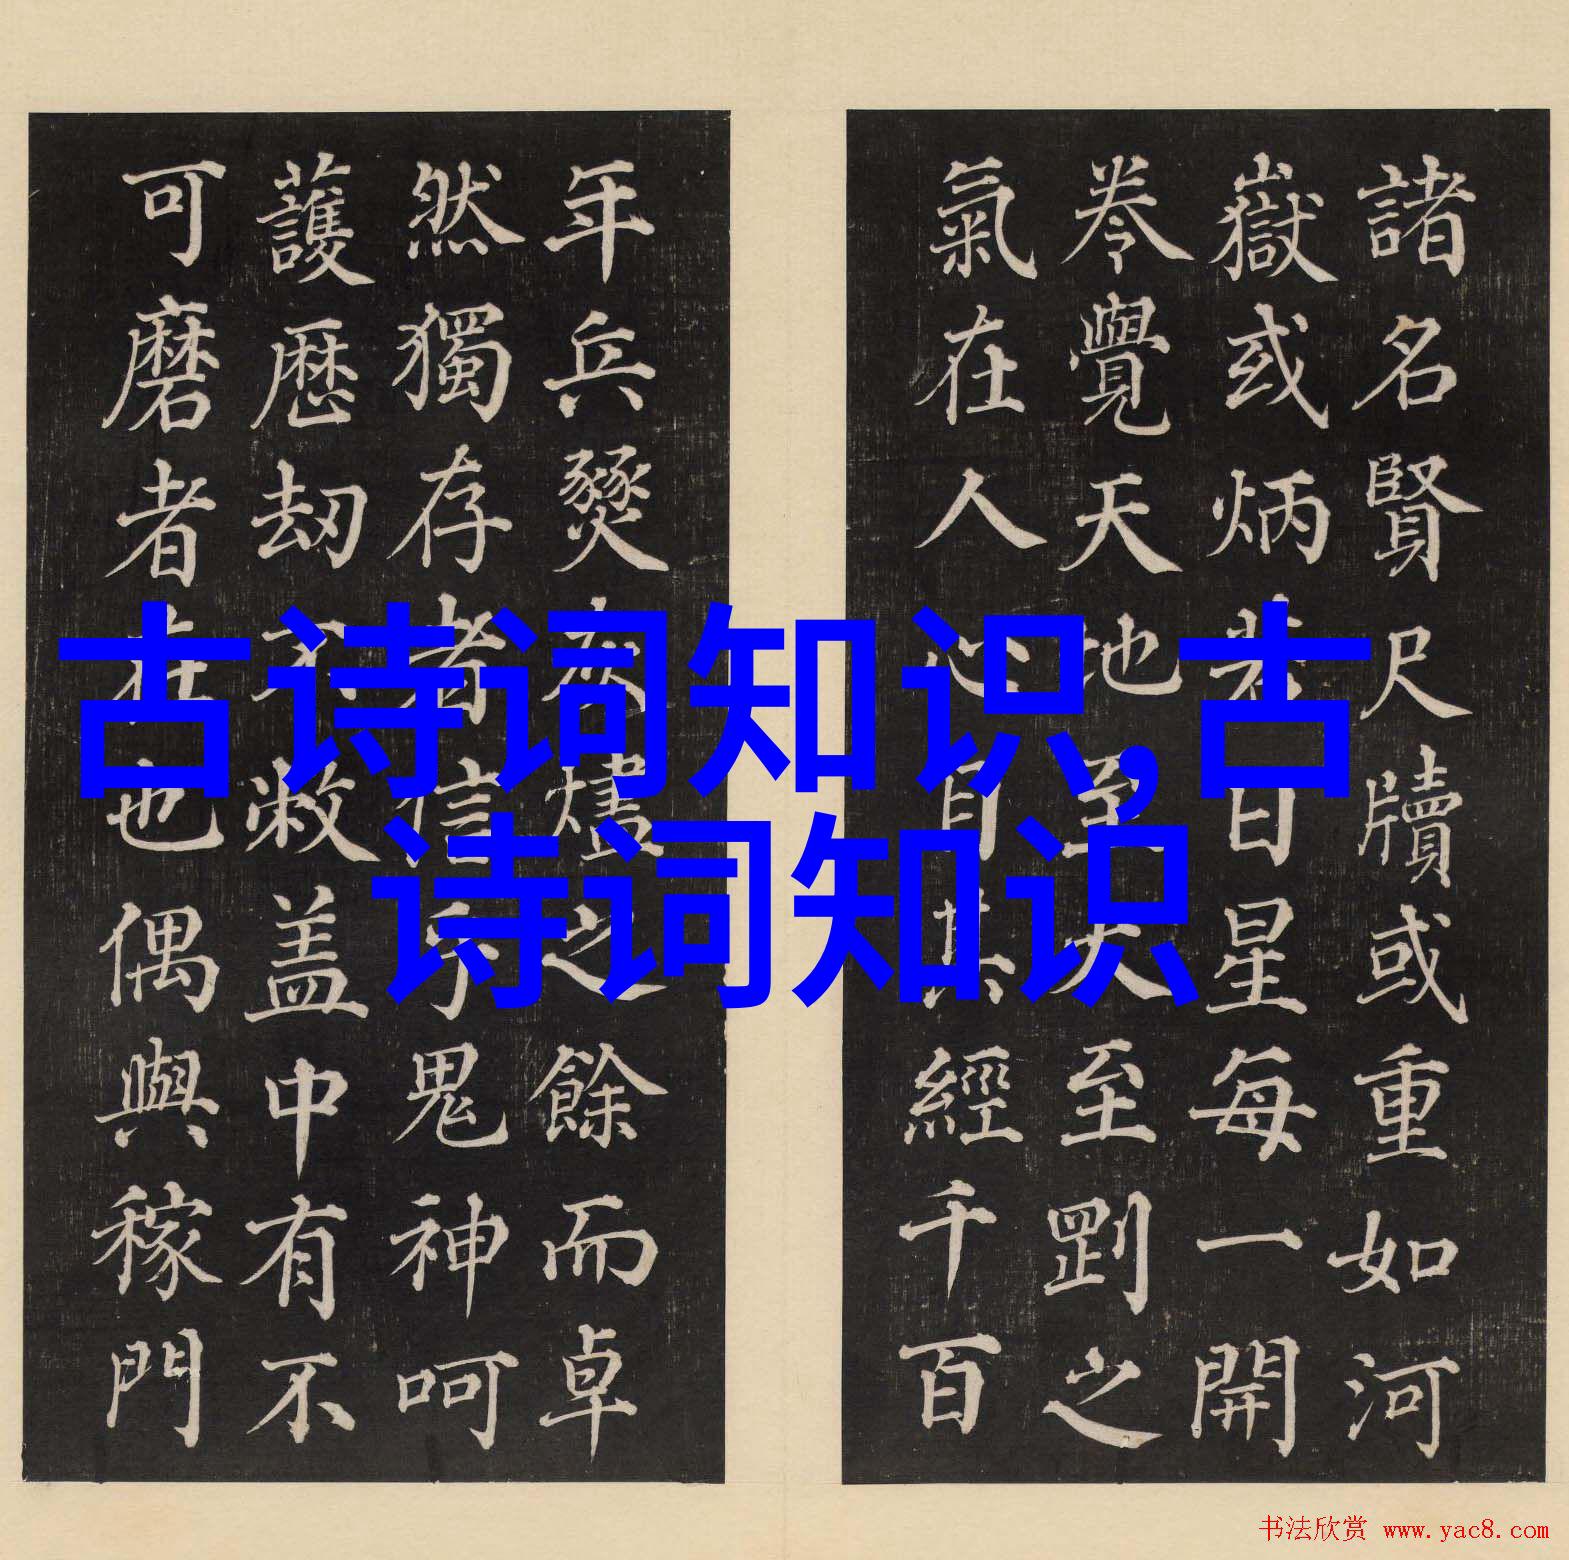 古诗词知识,古
诗词知识
諸名賢尺牘或重如河
嶽或炳若日星每一開
卷覺天地至大至剛之
氣在人心目其經千百
年兵燹灰燼之餘而卓
然獨存者信乎鬼神呵
護歷劫不敝盖中有不
可磨者在也偶與稼門
书法欣赏 www.yac8.com